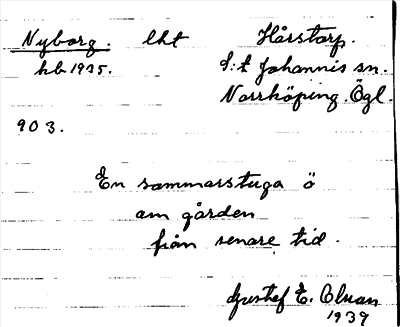 Nyborg. lht Hårstorp.
hb 1935. S:t Johannis sn.
Norrköping. Ögl.
903.
En sommarstuga ö
om gården
från senare tid.
Gustaf E. Olson
1939